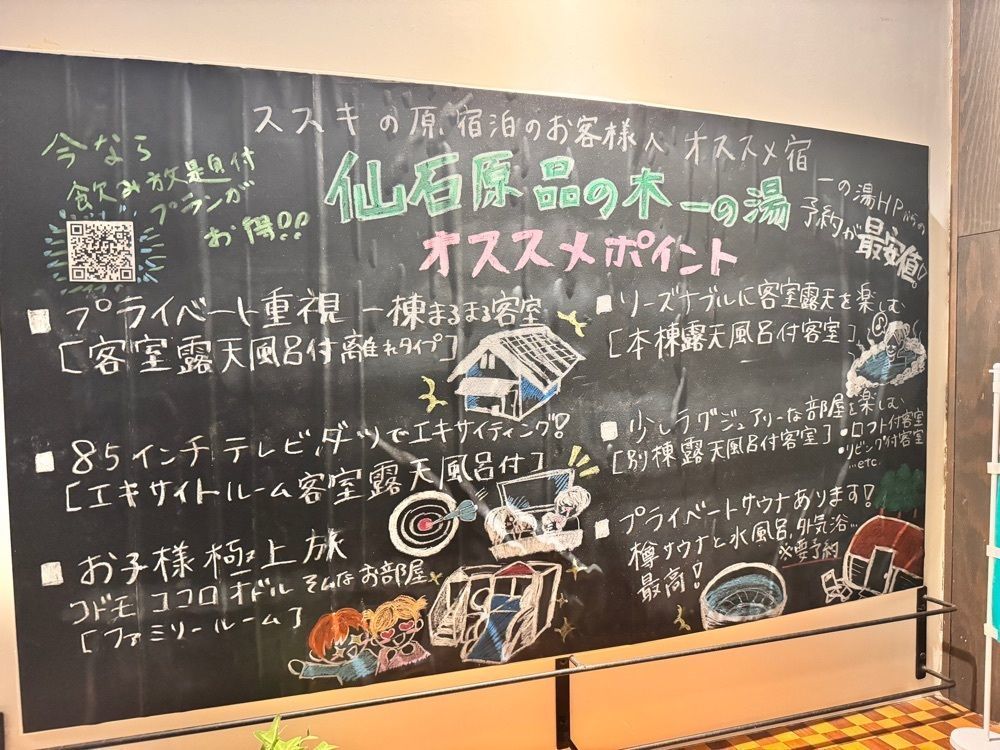 ススキの原 宿泊のお客様へ オススメ宿
仙石原 品の木 一の湯
オススメポイント
今なら
飲み放題付
プランが
お得!!
一の湯HPからの
予約が最安値!
プライベート重視 一棟まるまる客室
[客室露天風呂付離れタイプ]
85インチテレビ,ダーツでエキサイティング!
[エキサイトルーム客室露天風呂付]
お子様極上旅
コドモ ココロ オドル そんなお部屋
[ファミリールーム]
リーズナブルに客室露天を楽しむ
[本棟露天風呂付客室]
少しラグジュアリーな部屋を楽しむ
[別棟露天風呂付客室]
・ロフト付客室
・リビング付客室
...etc.
プライベートサウナあります!
樽サウナと水風呂,外気浴...
※要予約
最高!